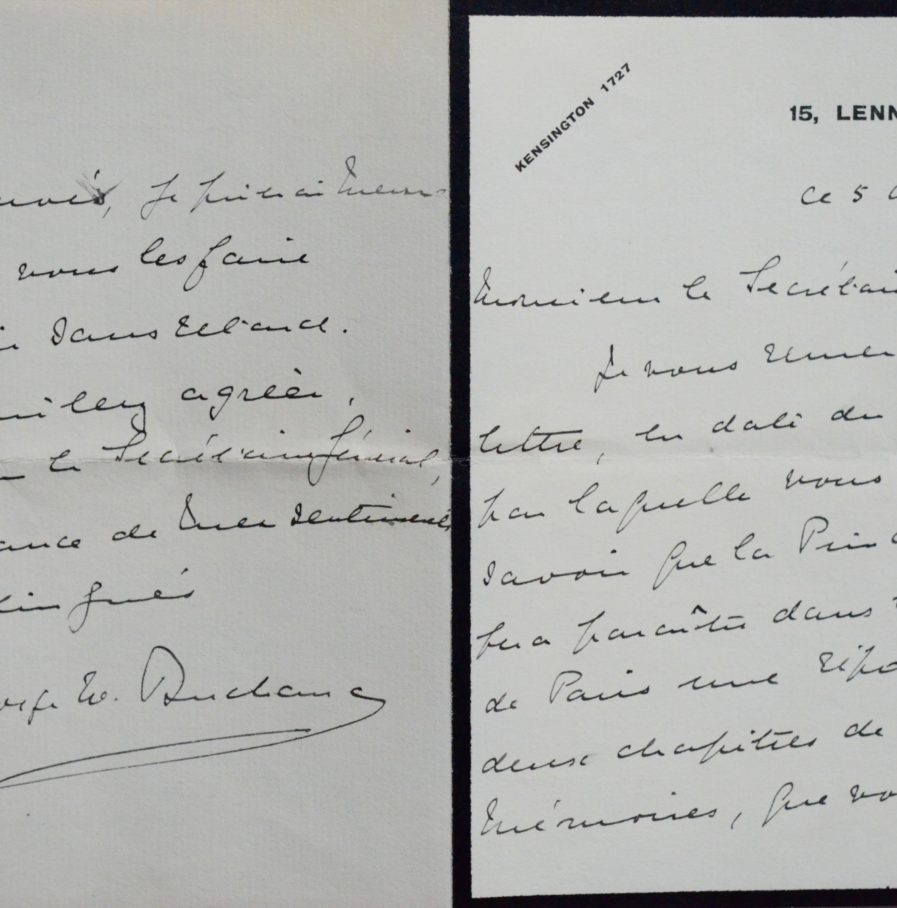 je prierai Messrs
vous les faire
dans retard.
agréer,
le Secrétaire Général,
ance de mes sentiments
tingués
W. Buchanan
KENSINGTON 1727
15, LENN
Ce 5
Monsieur le Secrétair
Je vous remer
lettre, en date du
par laquelle vous
savoir que la Prin
fera paraître dans
de Paris une répo
deux chapitres de
Mémoires, que vo